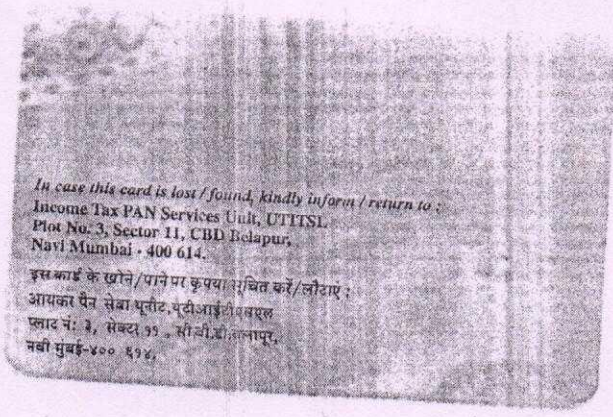 In case this card is lost / found, kindly inform / return to :
Income Tax PAN Services Unit, UTITSL
Plot No. 3, Sector 11, CBD Belapur,
Navi Mumbai - 400 614.
इस कार्ड के खोने/पाने पर कृपया सूचित करें/लौटाएं :
आयकर पैन सेवा यूनीट,
प्लाट नं: ३, सेक्टर ११ , सी.बी.डी.
नवी मुंबई-४०० ६१४,